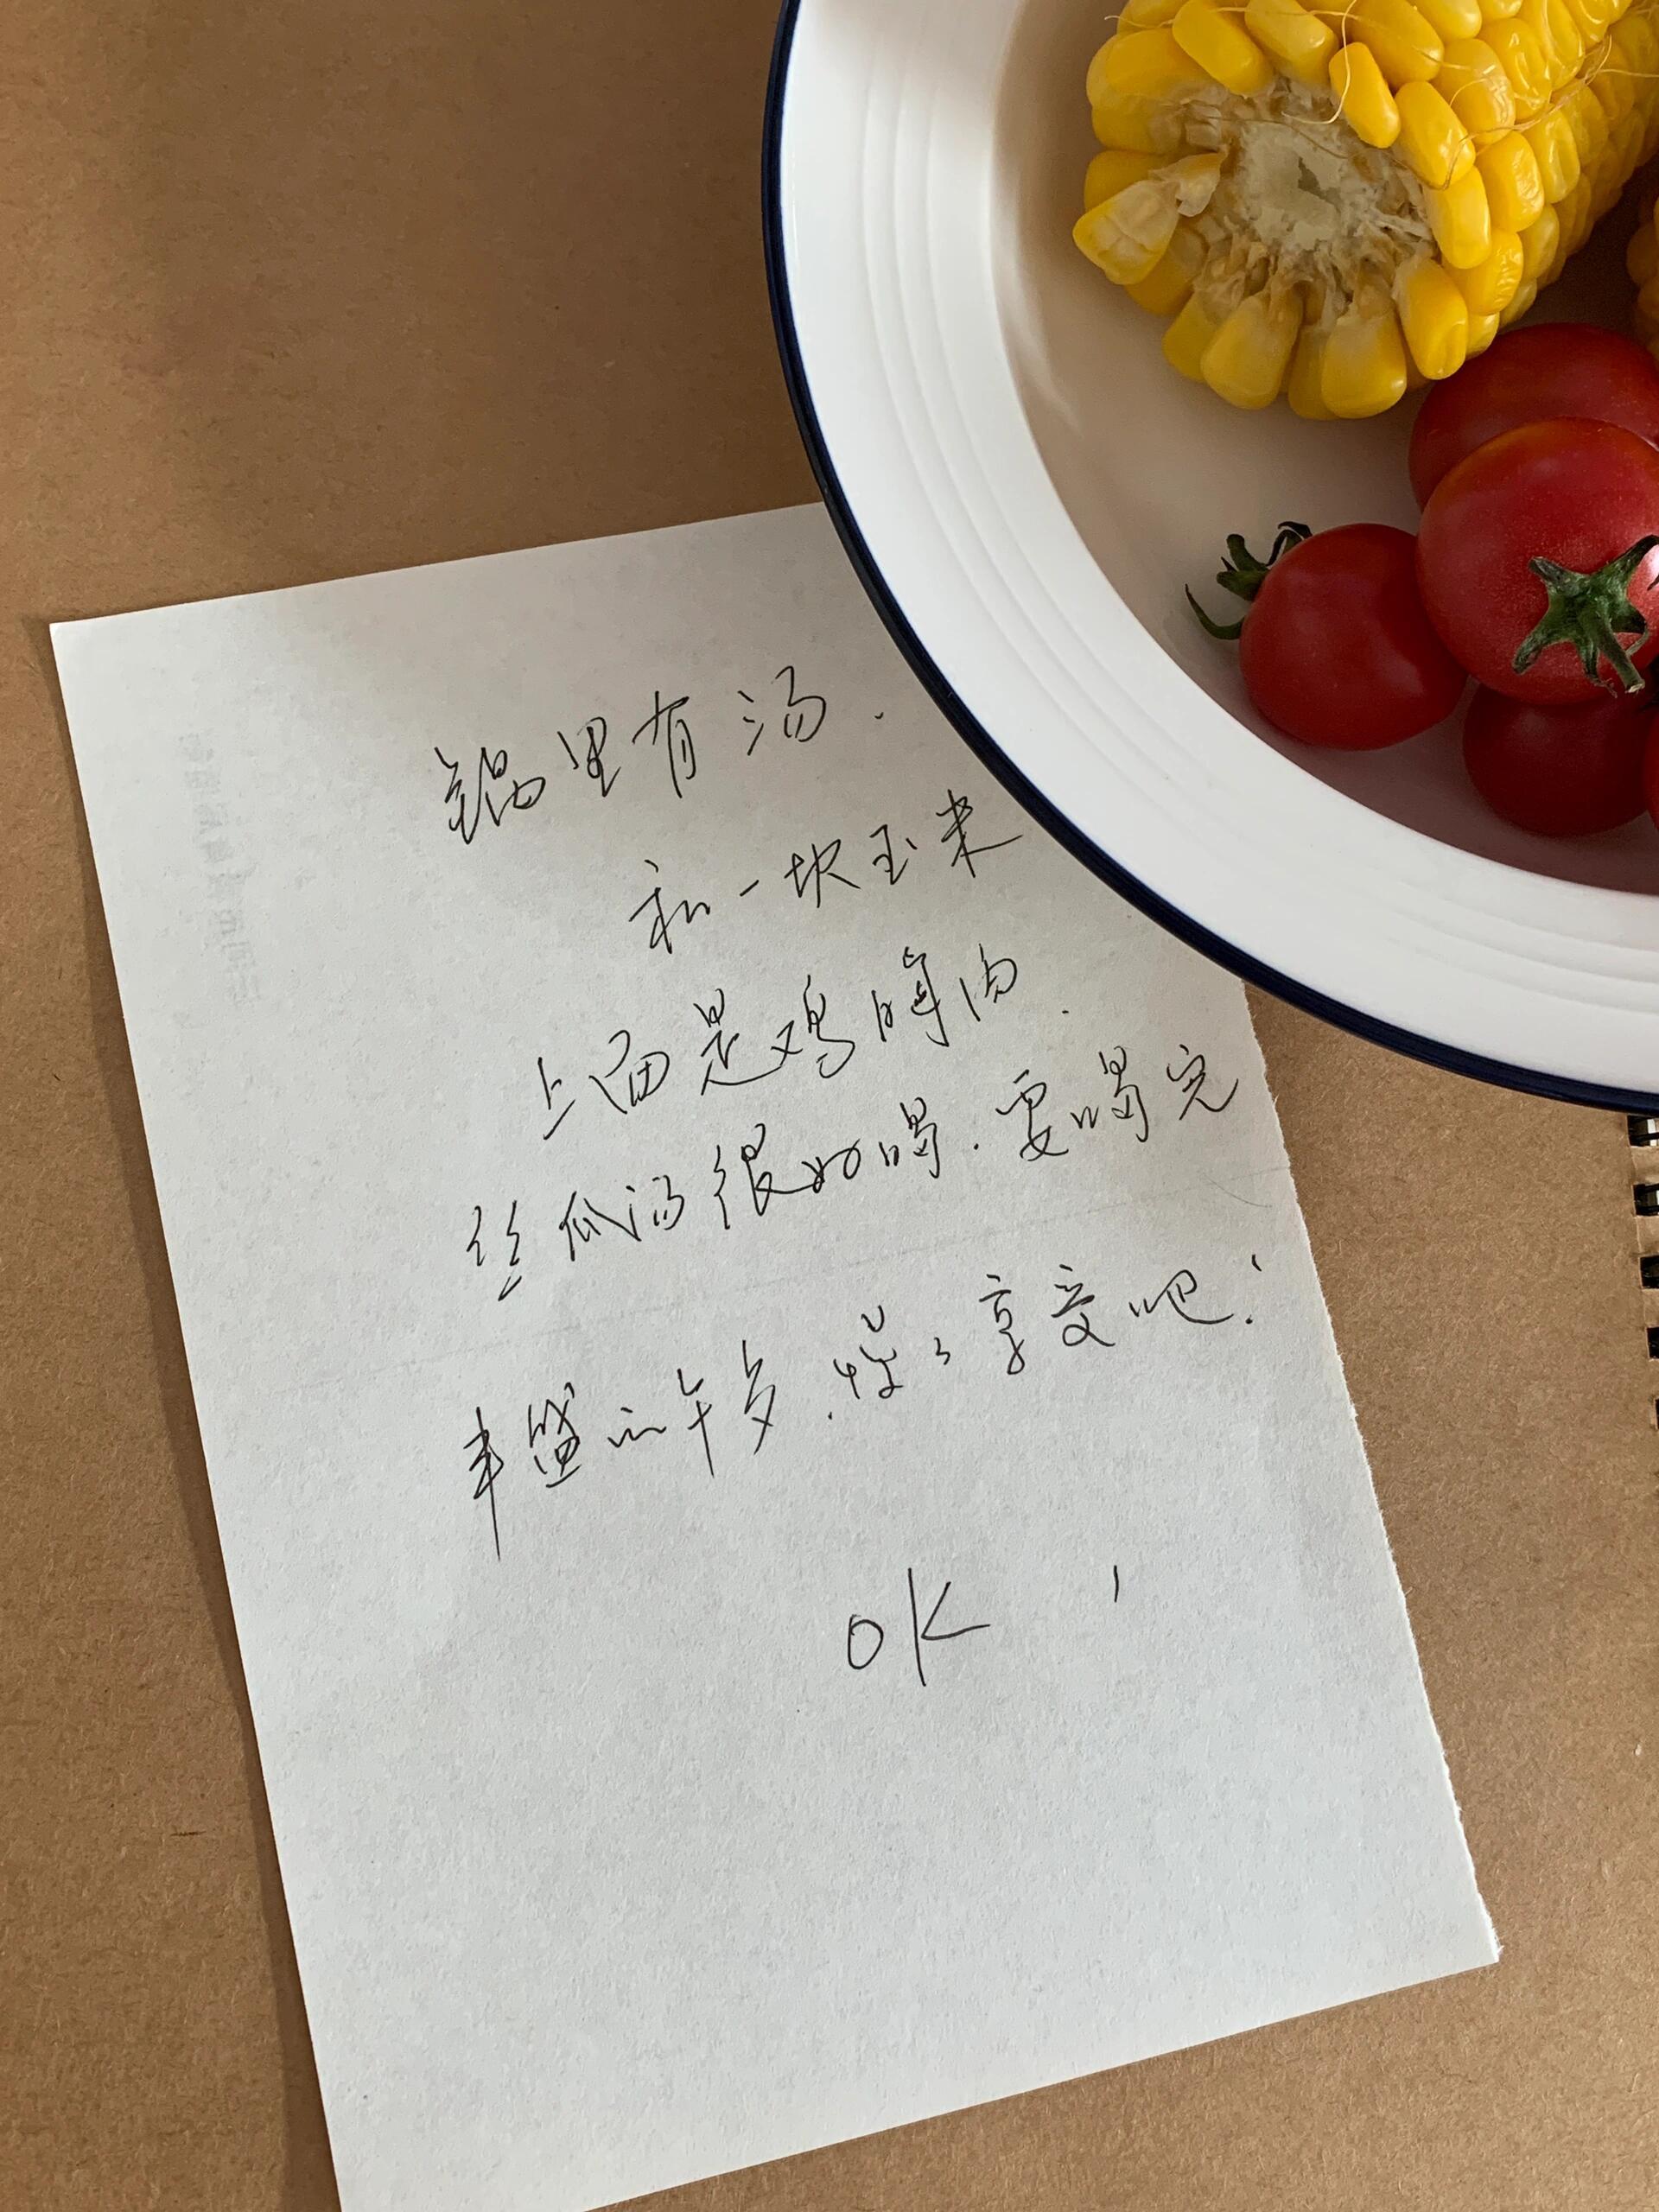 锅里有汤.
和一块玉米
上面是鸡胸肉.
丝瓜汤很好喝.要喝完
丰盛的午餐.慢慢享受吧!
OK